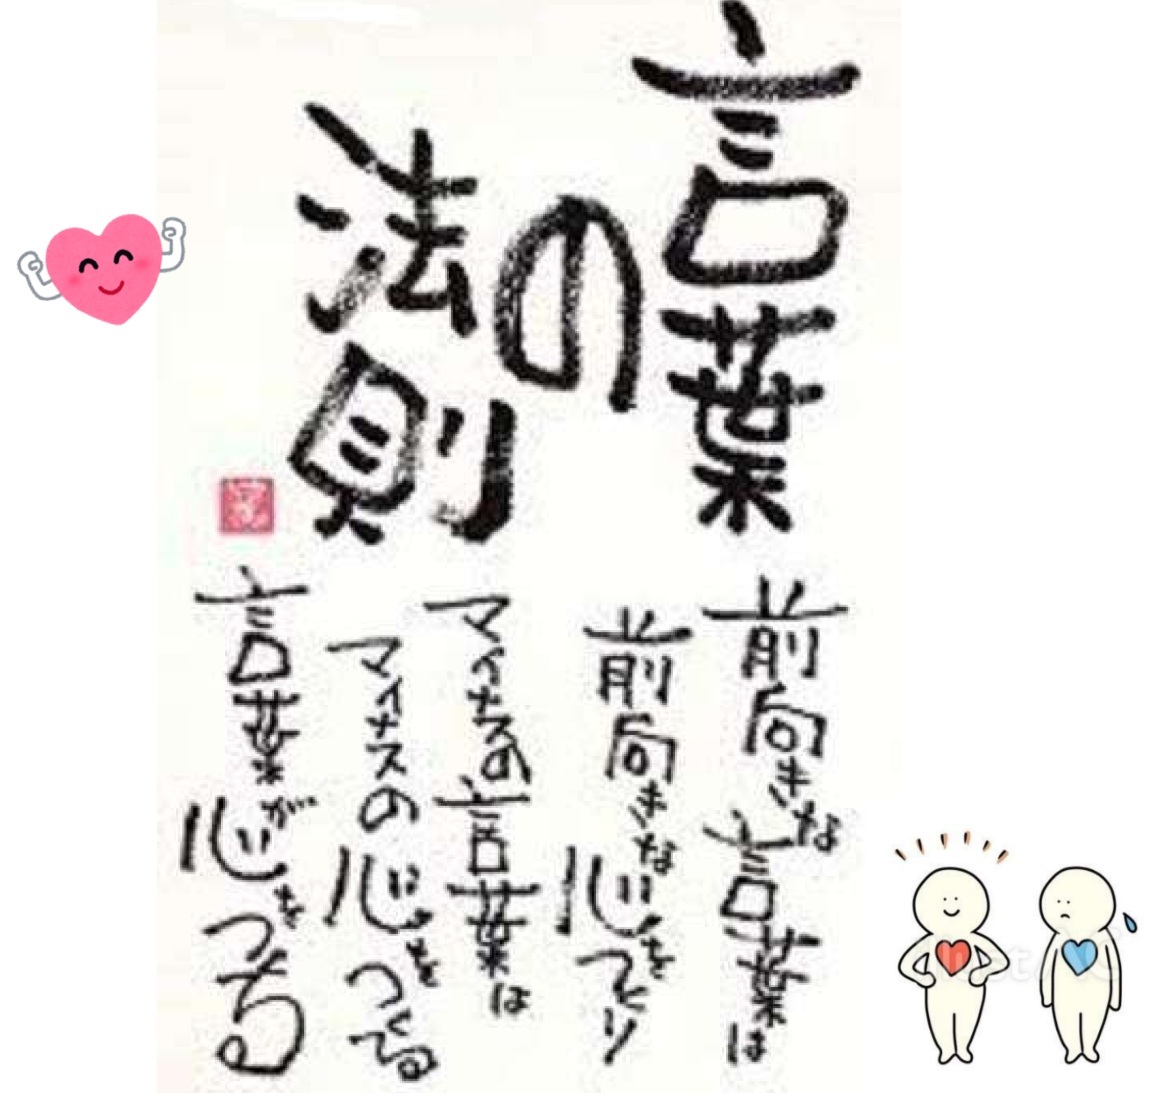 言葉
の
法則
前向きな言葉は
前向きな心をつくり
マイナスの言葉は
マイナスの心をつくる
言葉が心をつくる